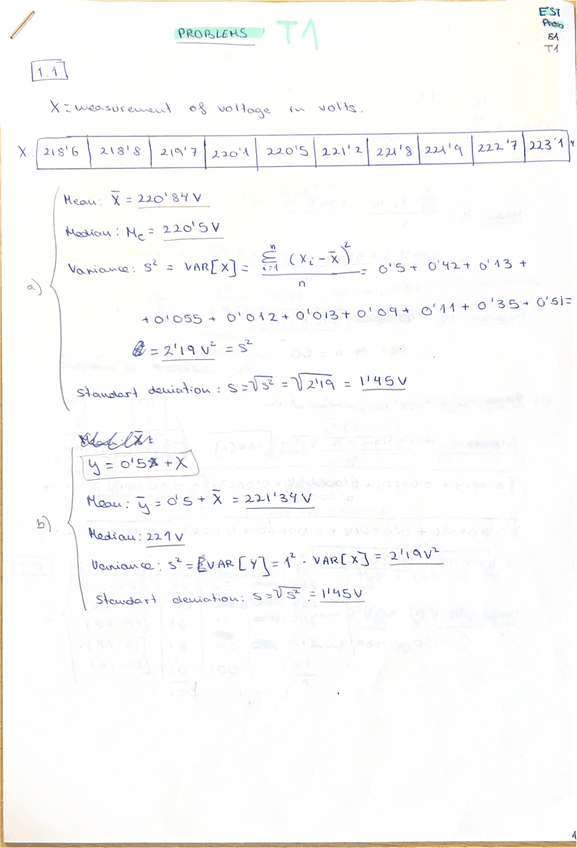 PROBLEMS T1
EST
Prob
S1
T1
1.1
X = measurement of voltage in volts.
X 218'6 218'8 219'7 220'1 220'5 221'2 221'8 221'9 222'7 223'1 V
a)
Mean: x̄ = 220'84 V
Median: Me = 220'5 V
Variance: S² = VAR[X] = Σ (Xi - x̄)² / n = 0'5 + 0'42 + 0'13 +
+ 0'055 + 0'012 + 0'013 + 0'09 + 0'11 + 0'35 + 0'51 =
= 2'19 V² = S²
Standart deviation: S = √S² = √2'19 = 1'45 V
b)
y = 0'5 + X
Mean: ȳ = 0'5 + x̄ = 221'34 V
Median: 221 V
Variance: S² = VAR[Y] = 1² · VAR[X] = 2'19 V²
Standart deviation: S = √S² = 1'45 V
1